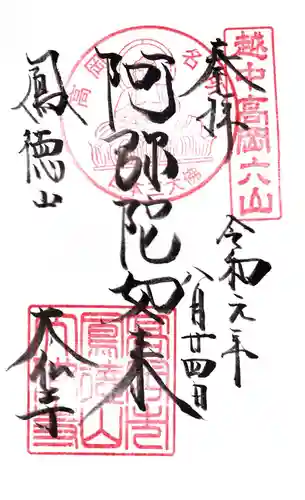 越中高岡六山
奉拝
令和元年
八月廿四日
阿弥陀如来
鳳徳山
大仏寺
日本三大佛